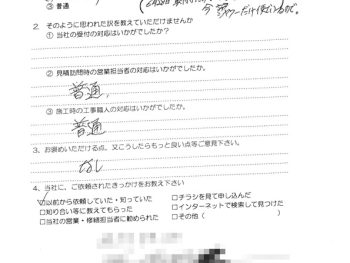 ③ 普通
今 シャワーだけ使っているので。
2. そのように思われた訳を教えていただけませんか
① 当社の受付の対応はいかがでしたか？
② 見積訪問時の営業担当者の対応はいかがでしたか。
普通
③ 施工時の工事職人の対応はいかがでしたか。
普通
3、お褒めいただける点、又こうしたらもっと良い点等ご意見下さい。
なし
4、当社に、ご依頼されたきっかけをお教え下さい
☑以前から依頼していた・知っていた □チラシを見て申し込んだ
□知り合い等に教えてもらった □インターネットで検索して見つけた
□当社の営業・修繕担当者に勧められた □その他（